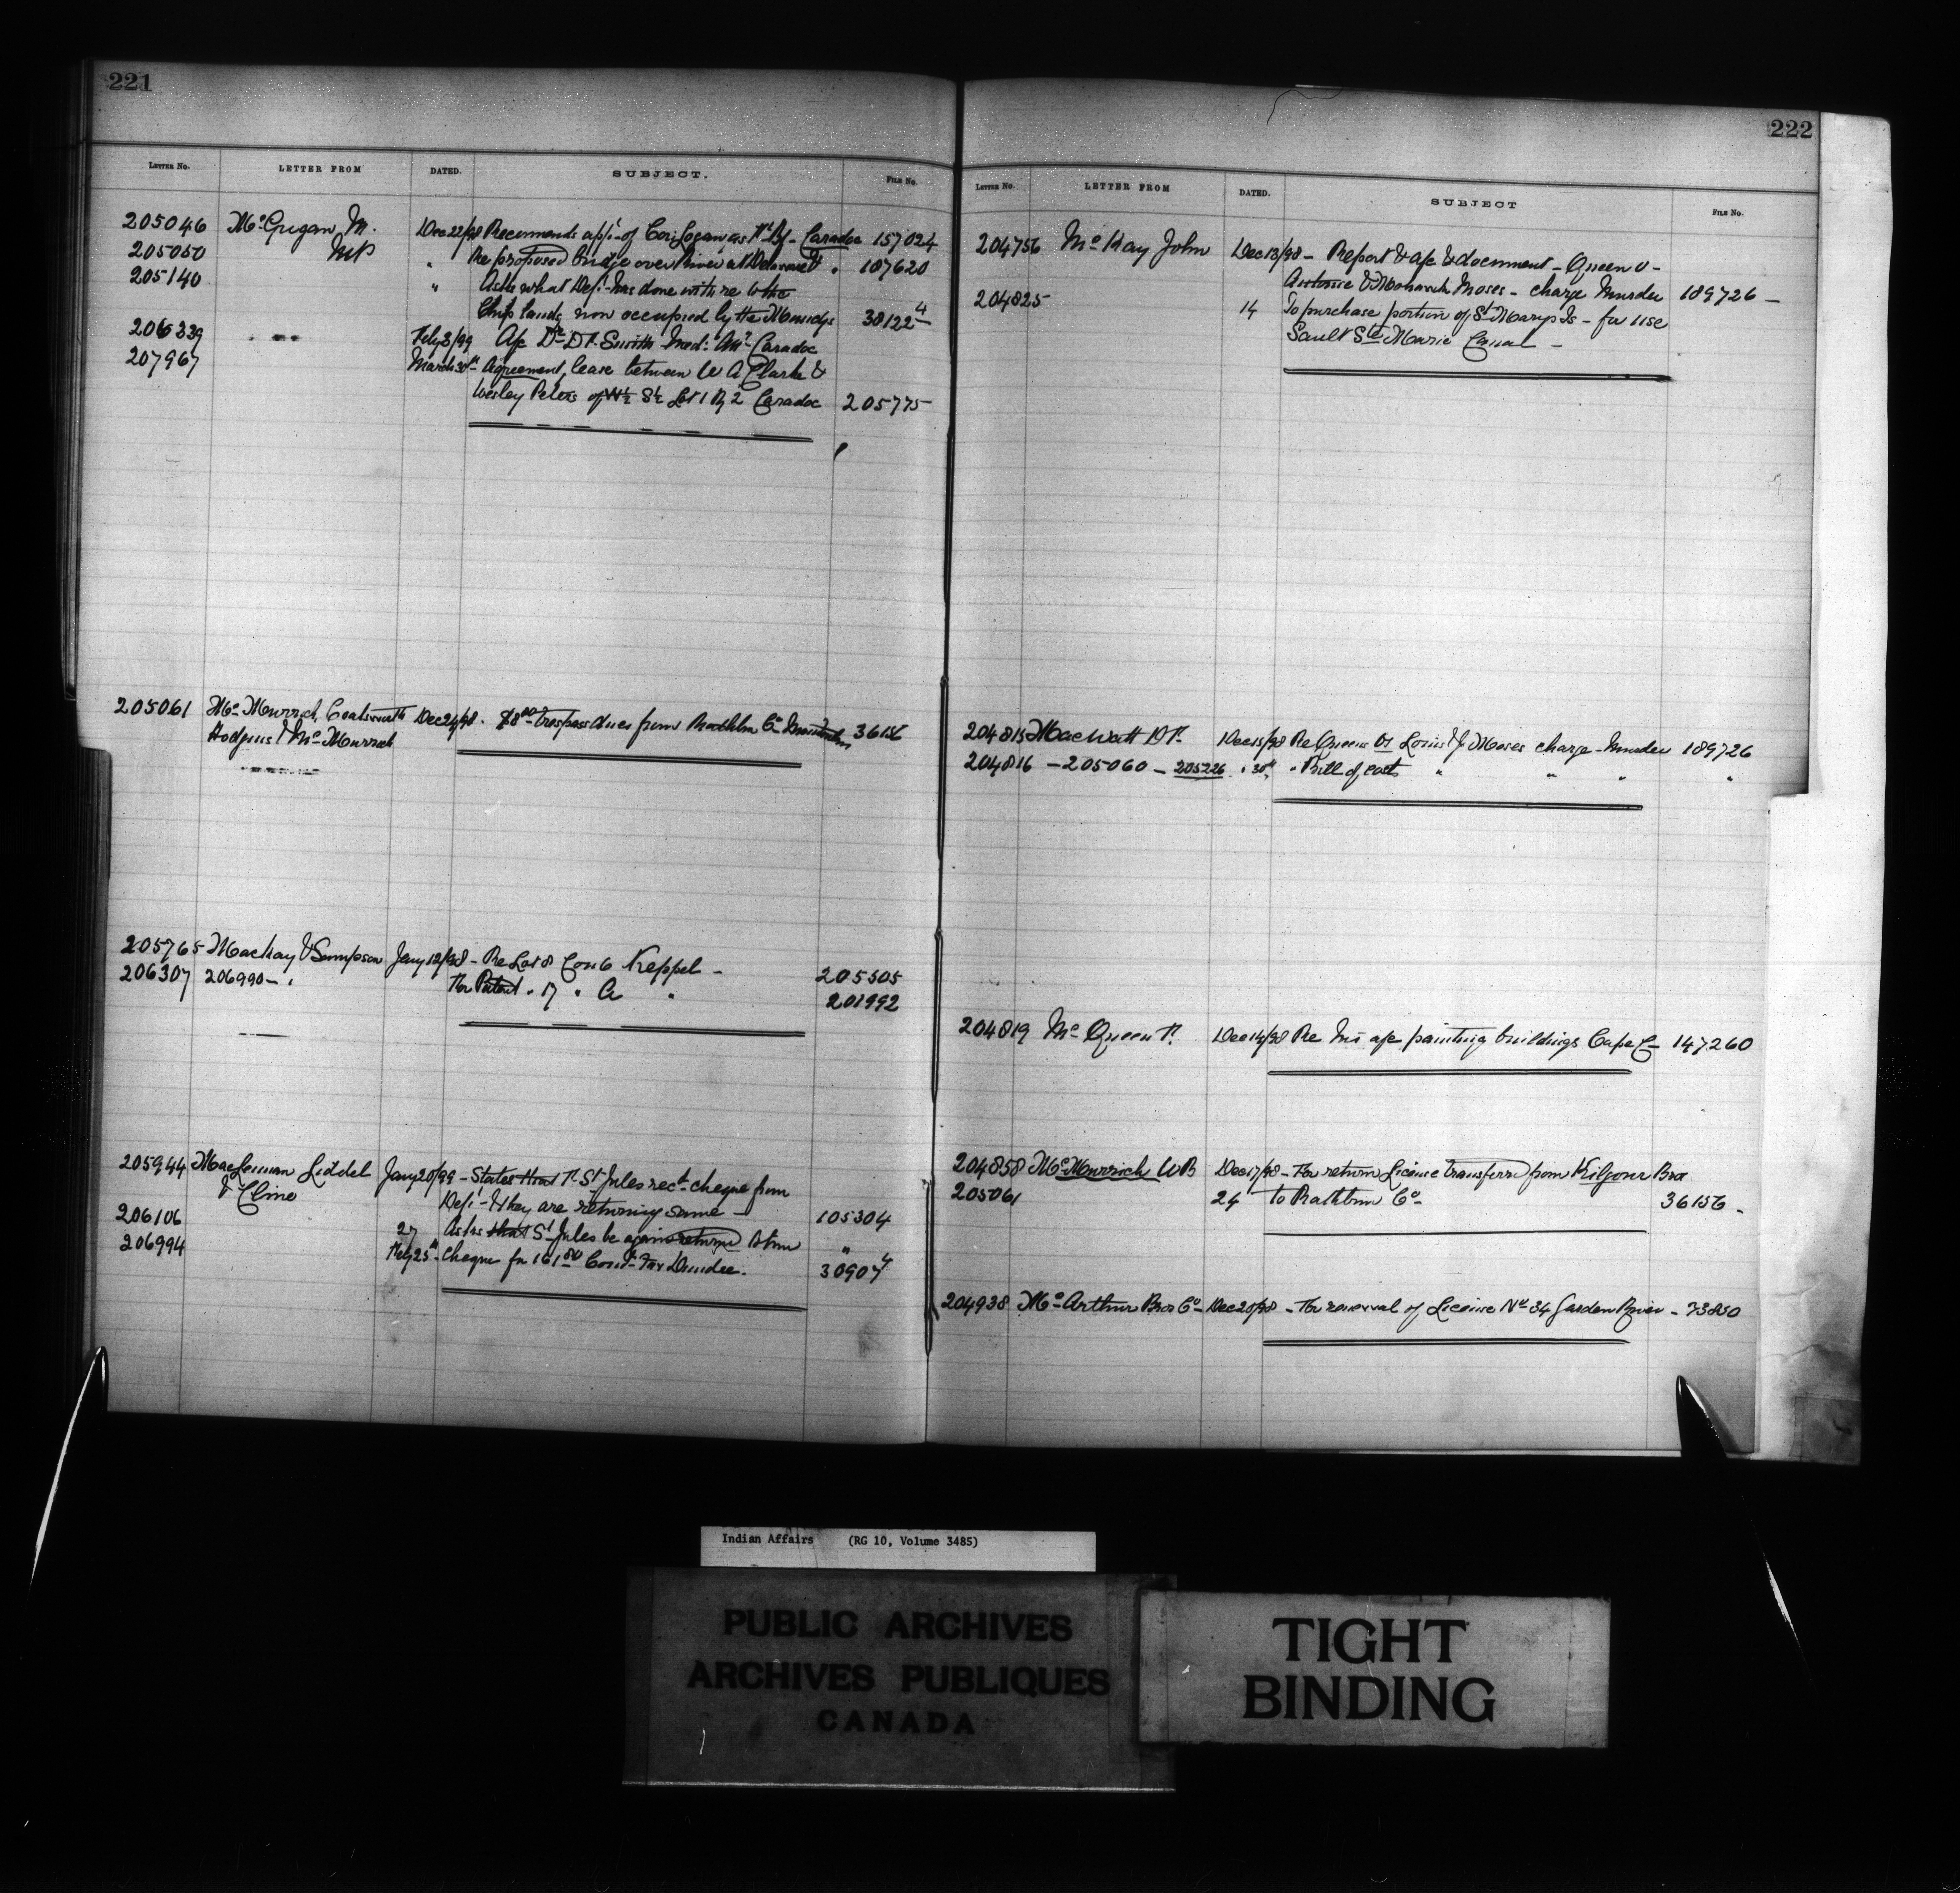 221
LETTER NO. LETTER FROM DATED. SUBJECT. FILE NO.
205046 McGugan, M. Dec 22/98 Recommends app't of Cori Logan as Caradoc 157024
205050 MP " Re proposed bridge over River at Delaware " 187620
205140 " Asks what Dep't has done with re to the
Chip lands now occupied by the Munceys 38122-4
206339 Feby 3/99 a/c Dr D F Smith Med: Att: Caradoc
207967 March 30th Agreement, lease between W A Clark &
Wesley Peters of W½ S½ Lot 1 Rg 2 Caradoc 205775
205061 McMurrich, Coatsworth Dec 24/98. $8.00 trespass dues from Rathbun Co 36156
Hodgins & McMurrich
205765 Mackay & Sampson Jany 12/98 - Re Lot 8 Con 6 Keppel - 205505
206307 206990 - " For Patent " 17 " A " 201992
205944 MacLennan Liddel Jany 20/99 - States that St Jules recd cheque from
& Cline Dep't - & they are returning same - 105304
206106 27 Asks that St Jules be again returned to him "
206994 Feby 25th - Cheque for 161.50 Dundee. 30907-4
222
LETTER NO. LETTER FROM DATED. SUBJECT FILE NO.
204756 McKay John Dec 13/98 - Report & a/c & document - Queen v -
Antoine & Moses - charge Murder 189726 -
204825 14 To purchase portion of St Marys Is - for use
Sault Ste Marie Canal -
204815 MacWatt D F. Dec 15/98 Re Queen vs Louis & J Moses charge - murder 189726
204816 - 205060 - 205226 " 30th " Bill of costs " " " "
204819 McQueen Dec 14/98 Re his a/c painting buildings Cape C - 147260
204858 McMurrich W B Dec 17/98 - For return License transferred from Kilgour Bros
205061 24 to Rathbun Co - 36156 -
204938 McArthur Bros Co - Dec 20/98 - For renewal of License No 34 Garden River - 73850
Indian Affairs (RG 10, Volume 3485)
PUBLIC ARCHIVES
ARCHIVES PUBLIQUES
CANADA
TIGHT
BINDING